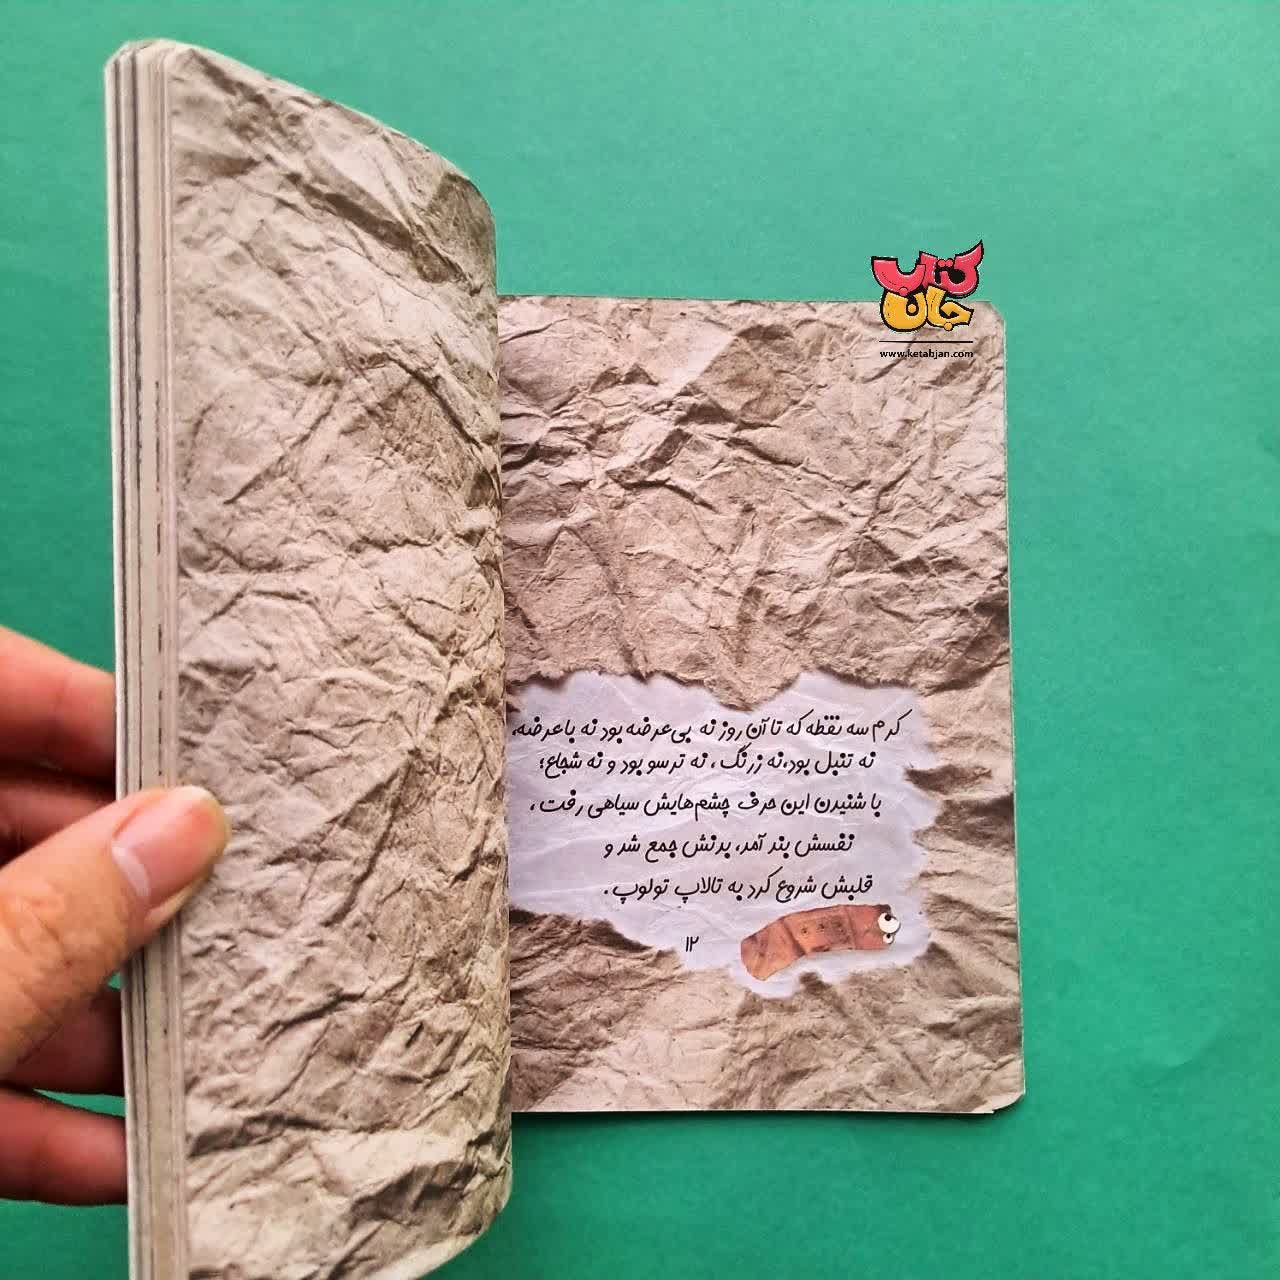 کتاب
جان
www.ketabjan.com
کرم سه نقطه که تا آن روز نه بی‌عرضه بود نه باعرضه،
نه تنبل بود،نه زرنگ، نه ترسو بود و نه شجاع؛
با شنیدن این حرف چشم‌هایش سیاهی رفت،
نفسش بند آمد، بدنش جمع شد و
قلبش شروع کرد به تالاپ تولوپ.
۱۲